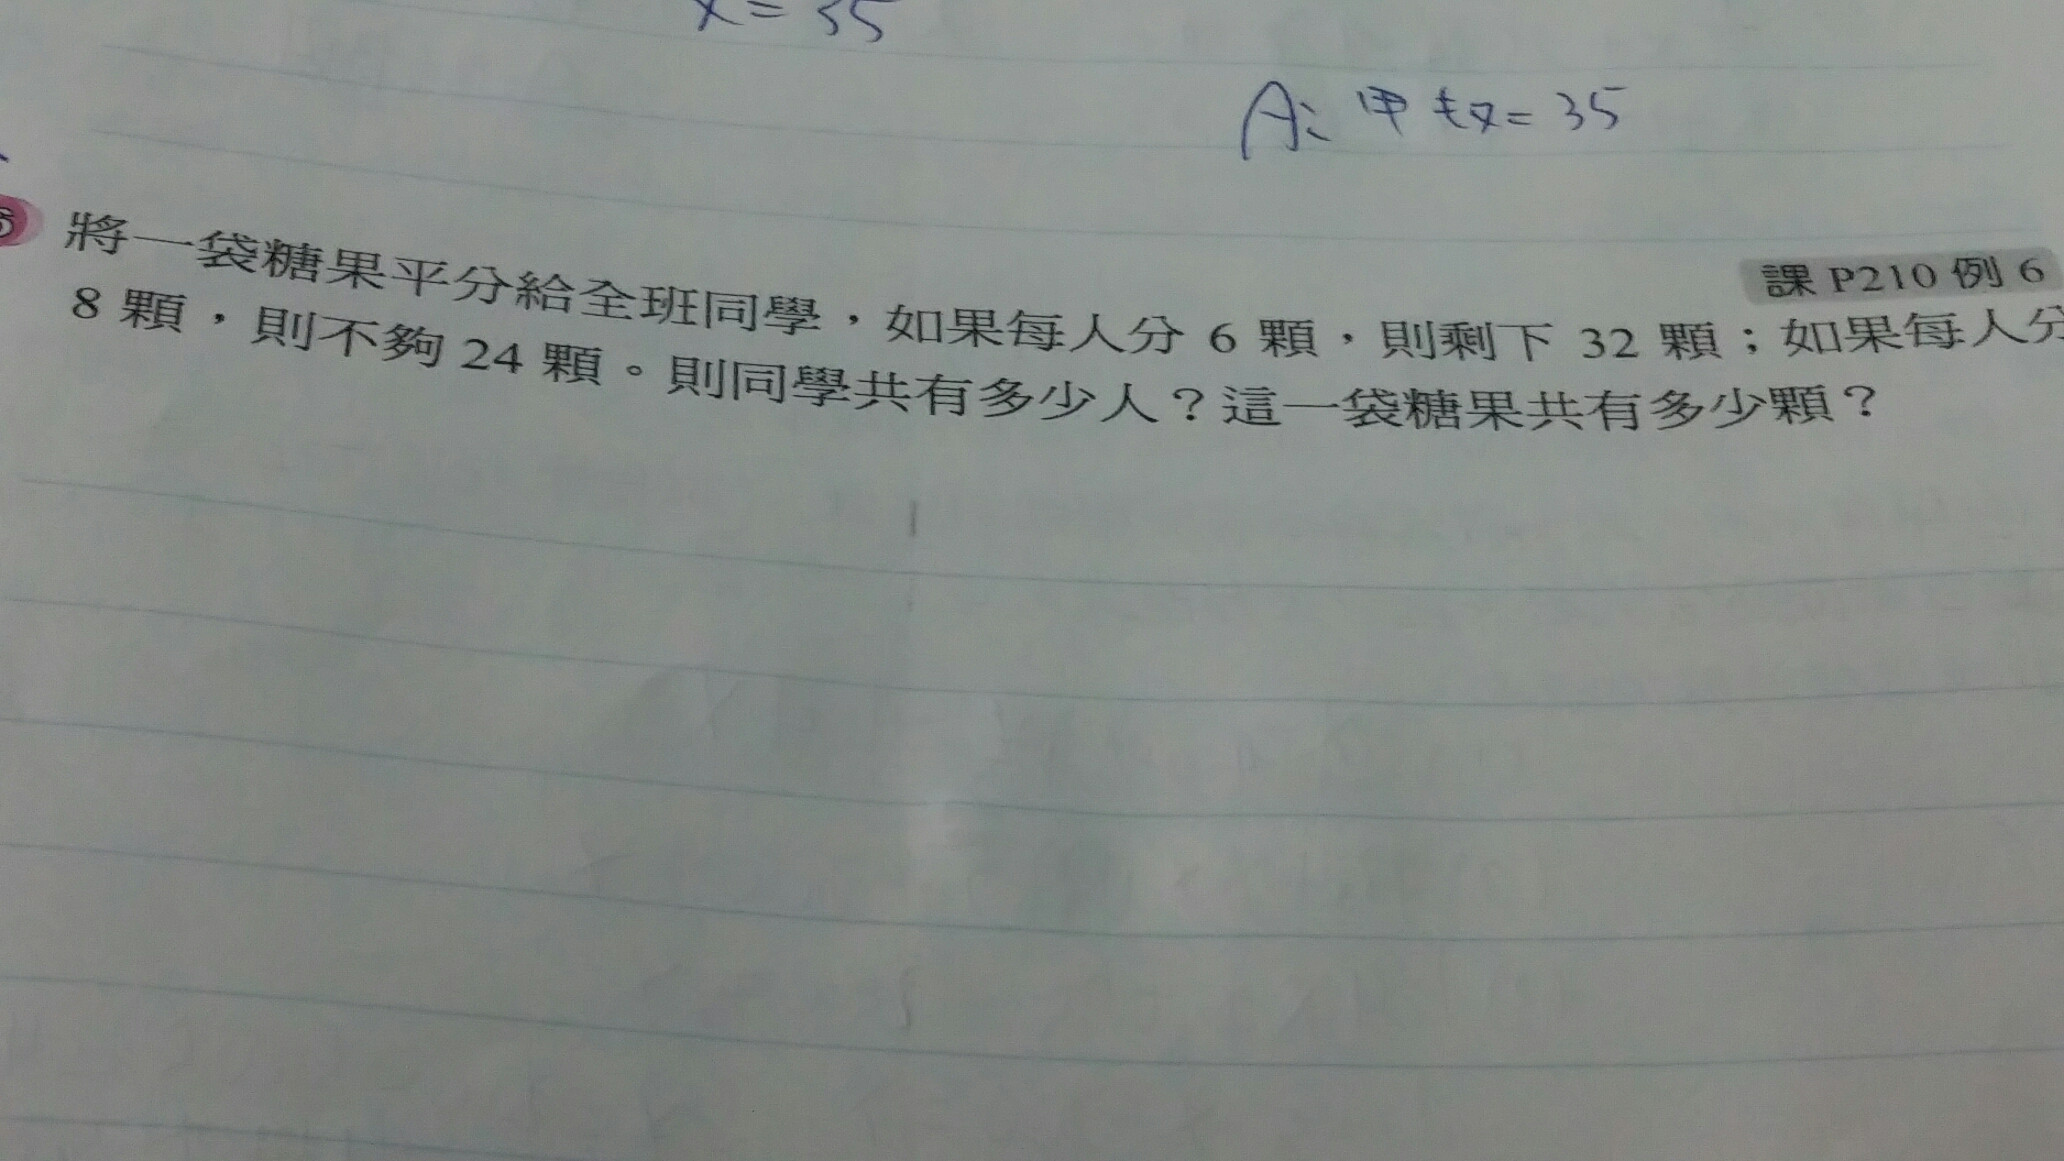 x = 35
A: 甲數 = 35
課 P210 例 6
將一袋糖果平分給全班同學，如果每人分 6 顆，則剩下 32 顆；如果每人分
8 顆，則不夠 24 顆。則同學共有多少人？這一袋糖果共有多少顆？